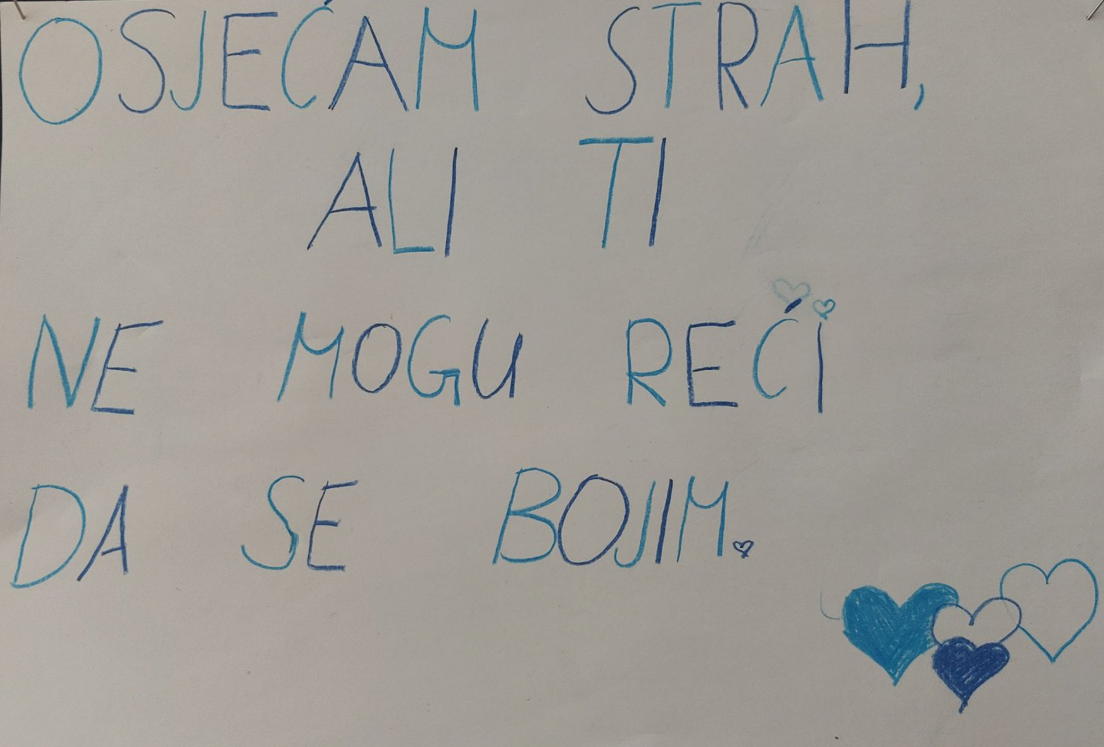 OSJEĆAM STRAH,
ALI TI
NE MOGU REĆI
DA SE BOJIM.